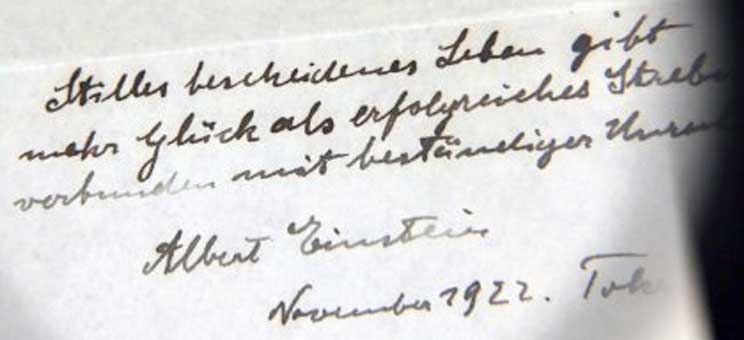 Stilles bescheidenes Leben gibt
mehr Glück als erfolgreiches Streben
verbunden mit beständiger Unruhe
Albert Einstein
November 1922. Tok